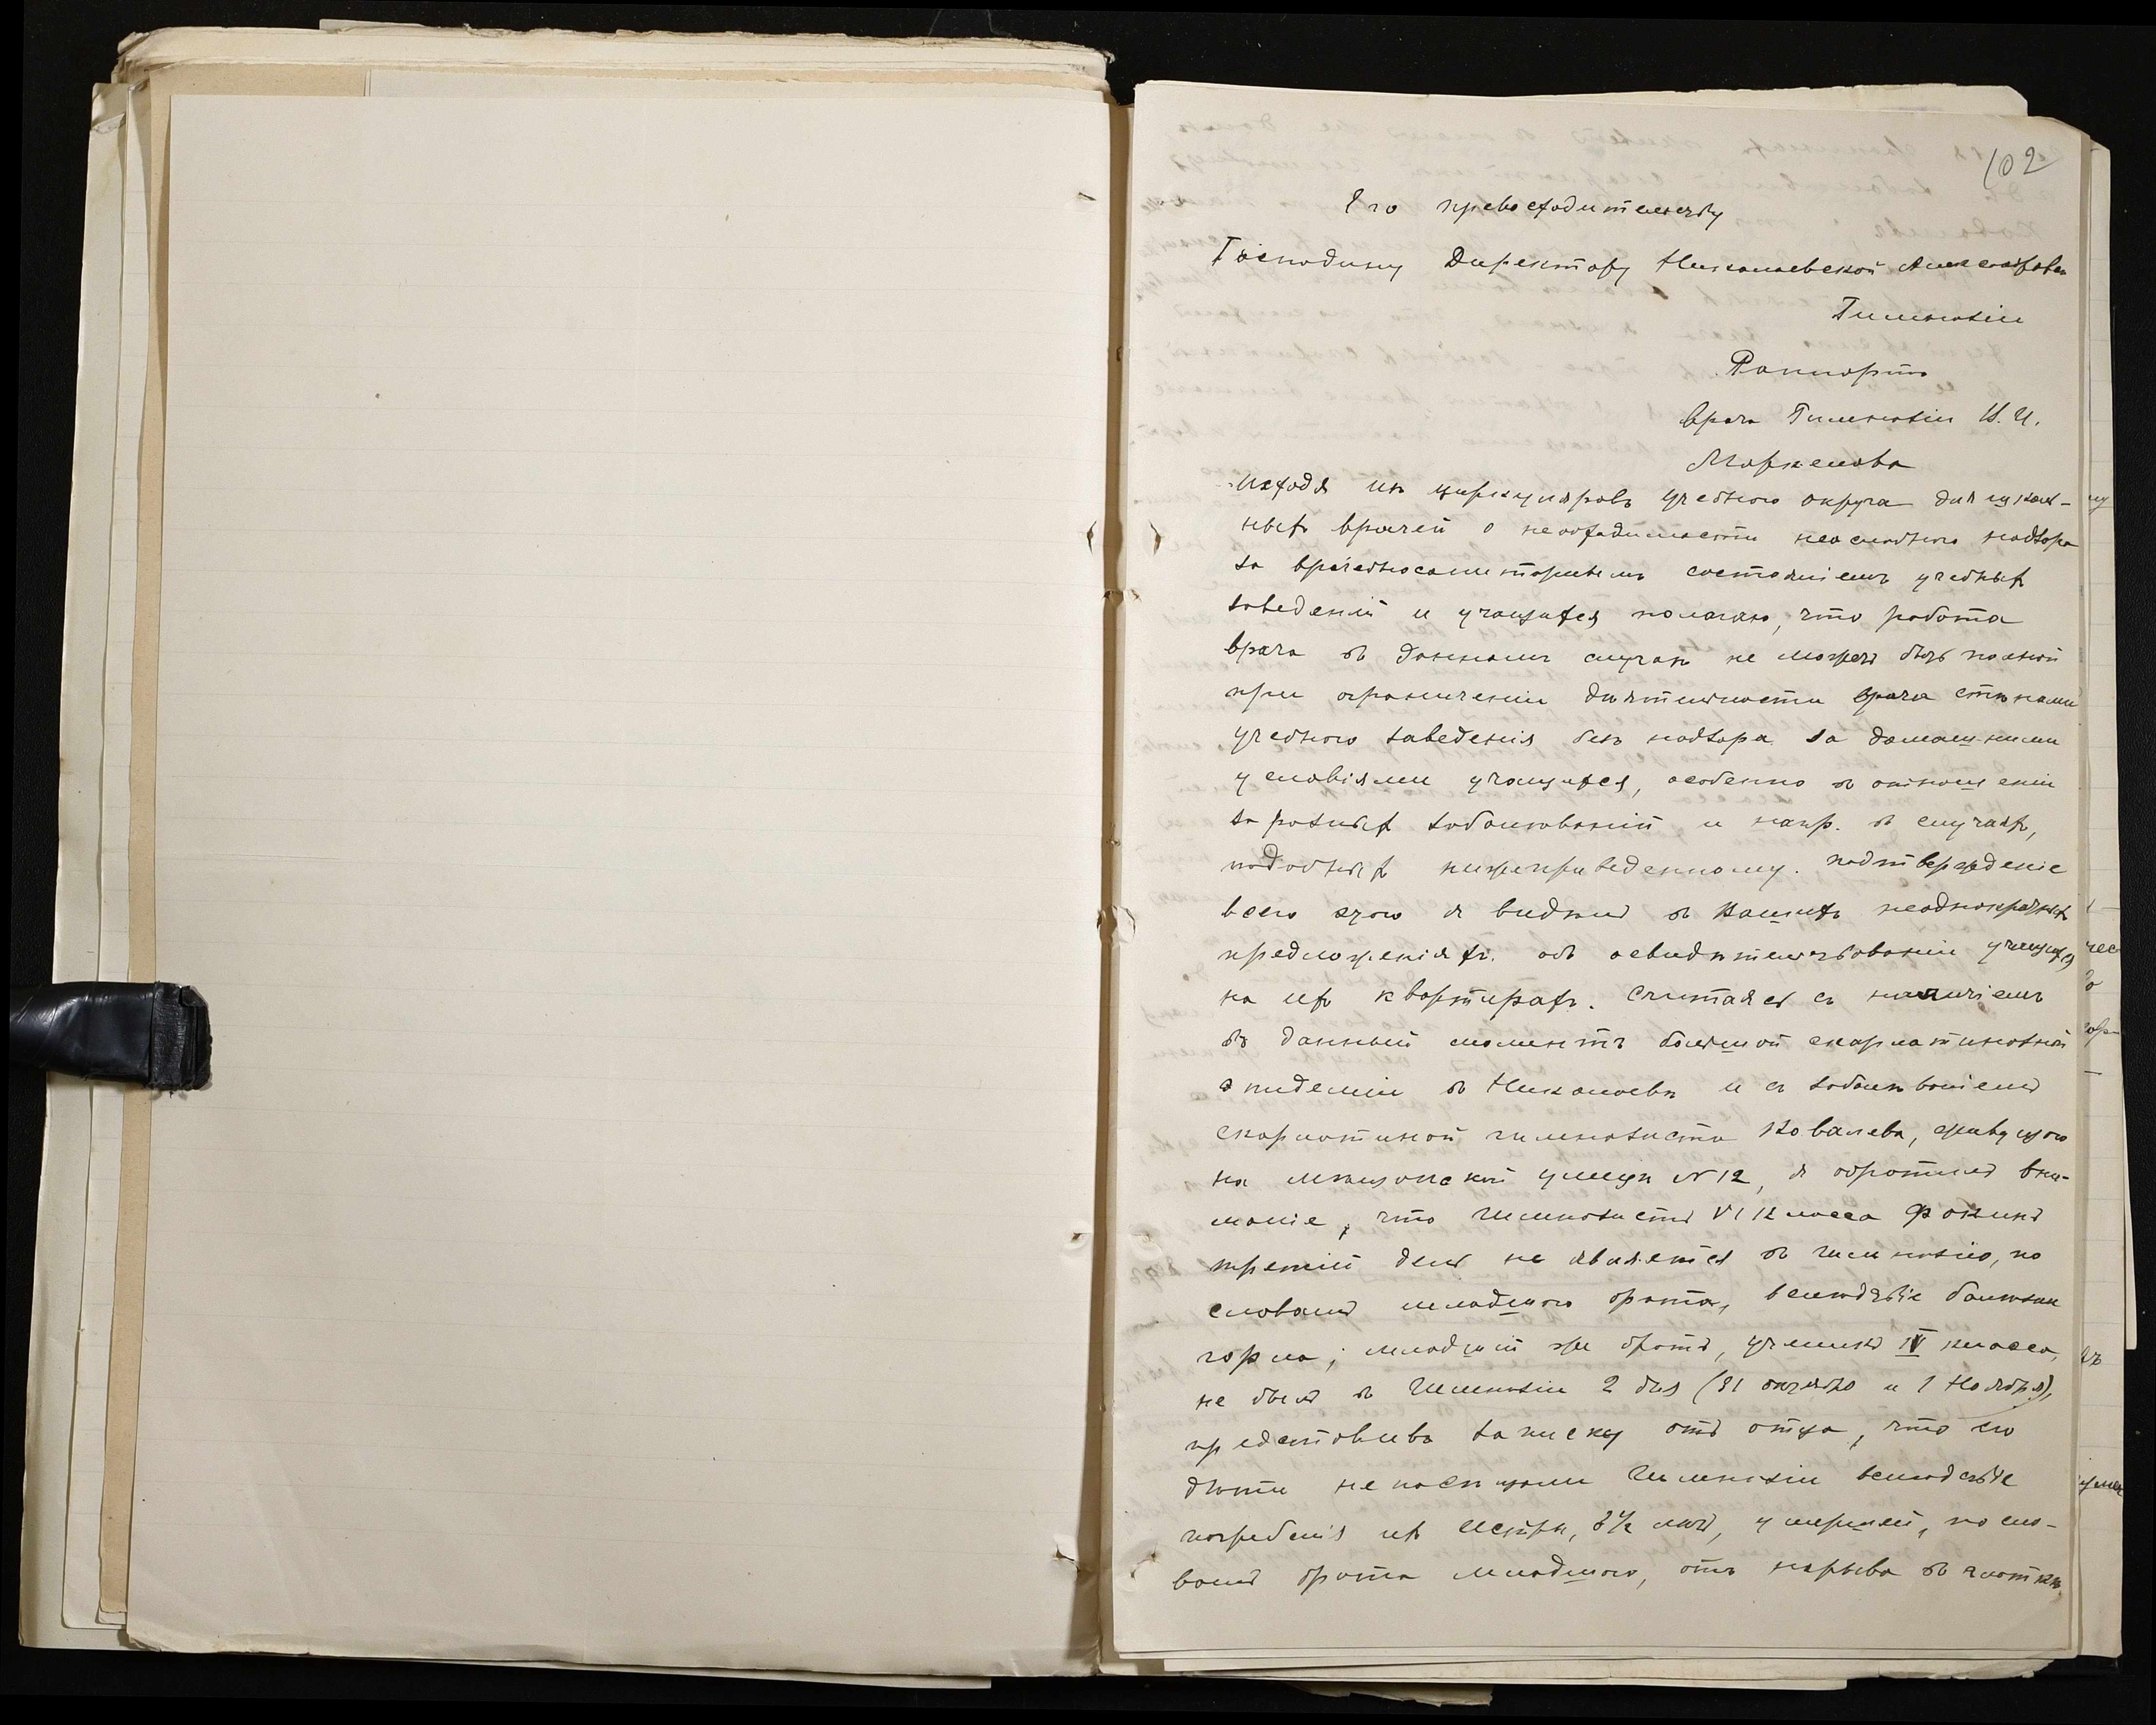 102
Его превосходительству
Господину Директору Николаевской Александровск
Гимназіи
Раппортъ
врача Гимназіи И. И.
Маркелова
Исходя изъ циркуляровъ учебнаго округа для гимназ-
ныхъ врачей о необходимости неослабнаго надзора
за врачебносанитарнымъ состояніемъ учебныхъ
заведеній и учащихся полагаю, что работа
врача въ данномъ случаѣ не можетъ быть полной
при ограниченіи дѣятельности врача стѣнами
учебнаго заведенія безъ надзора за домашними
условіями учащихся, особенно въ отношеніи
заразныхъ заболѣваній и напр. въ случаяхъ,
подобныхъ нижеприведенному. Подтвержденіе
всего этого я видѣлъ въ Вашихъ неоднократныхъ
предложеніяхъ объ освидѣтельствованіи учащихся
на ихъ квартирахъ. Считаясь съ наличіемъ
въ данный моментъ большой скарлатинозной
эпидеміи въ Николаевѣ и съ заболѣваніемъ
скарлатиной гимназиста Ковалева, живущаго
на Мѣщанской улицѣ N 12, я обратилъ вни-
маніе, что гимназистъ VI класса Фокинъ
третій день не является въ гимназію, по
словамъ младшаго брата, вслѣдствіе болѣзни
горла; младшій же братъ, ученикъ IV класса,
не былъ въ Гимназіи 2 дня (31 октября и 1 Ноября),
представивъ записку отъ отца, что его
дѣти не посѣщали Гимназіи вслѣдствіе
погребенія ихъ сестры, 3½ лѣтъ, умершей, по сло-
вамъ брата младшаго, отъ нарыва въ глоткѣ,